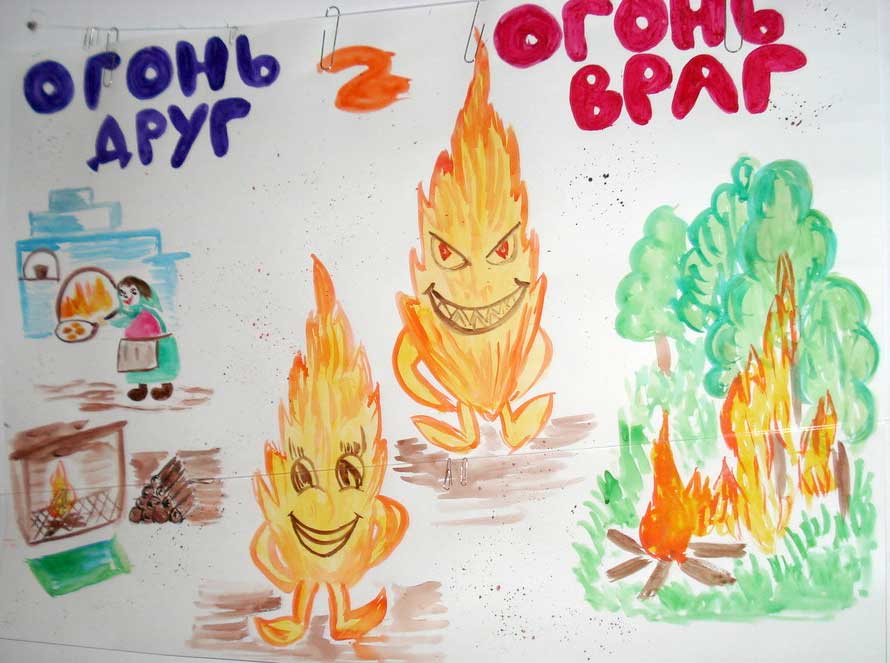 ОГОНЬ
ДРУГ
2
ОГОНЬ
ВРАГ